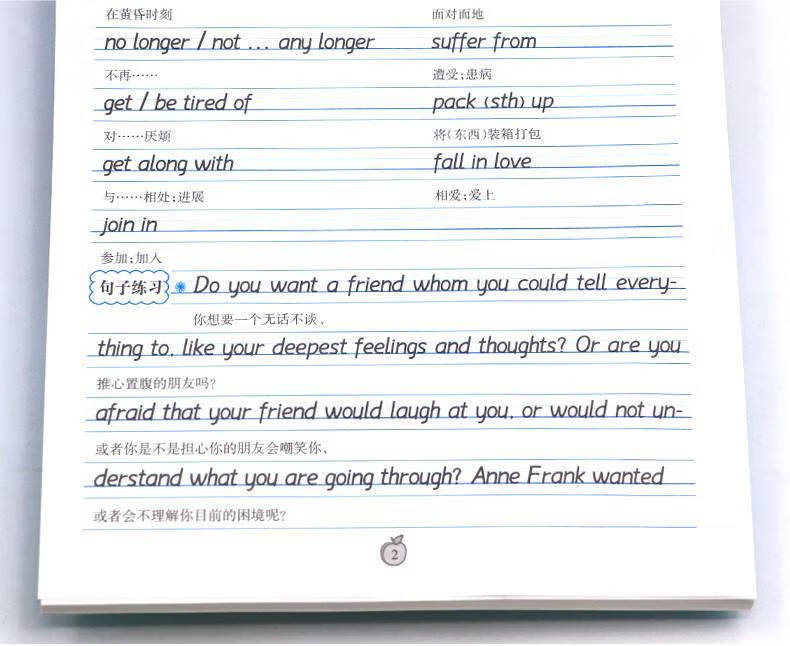 在黄昏时刻 面对面地
no longer / not ... any longer suffer from
不再…… 遭受;患病
get / be tired of pack (sth) up
对……厌烦 将(东西)装箱打包
get along with fall in love
与……相处;进展 相爱;爱上
join in
参加;加入
句子练习 Do you want a friend whom you could tell every-
你想要一个无话不谈、
thing to, like your deepest feelings and thoughts? Or are you
推心置腹的朋友吗?
afraid that your friend would laugh at you, or would not un-
或者你是不是担心你的朋友会嘲笑你、
derstand what you are going through? Anne Frank wanted
或者会不理解你目前的困境呢?
2